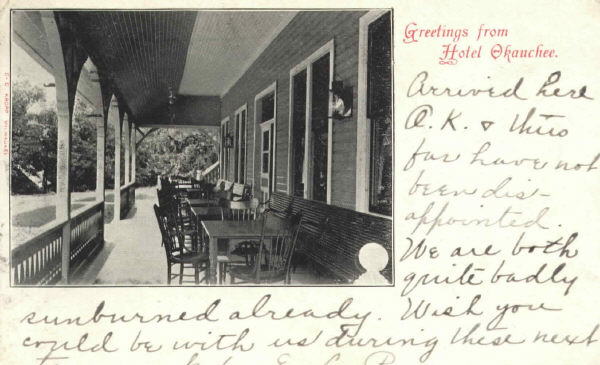 Greetings from
Hotel Okauchee.
Arrived here
O.K. & thus
far have not
been dis-
appointed.
We are both
quite badly
sunburned already. Wish you
could be with us during these next